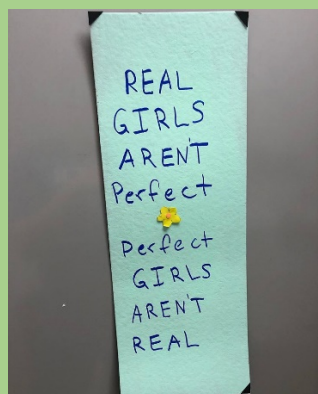 REAL
GIRLS
AREN'T
Perfect
Perfect
GIRLS
AREN'T
REAL